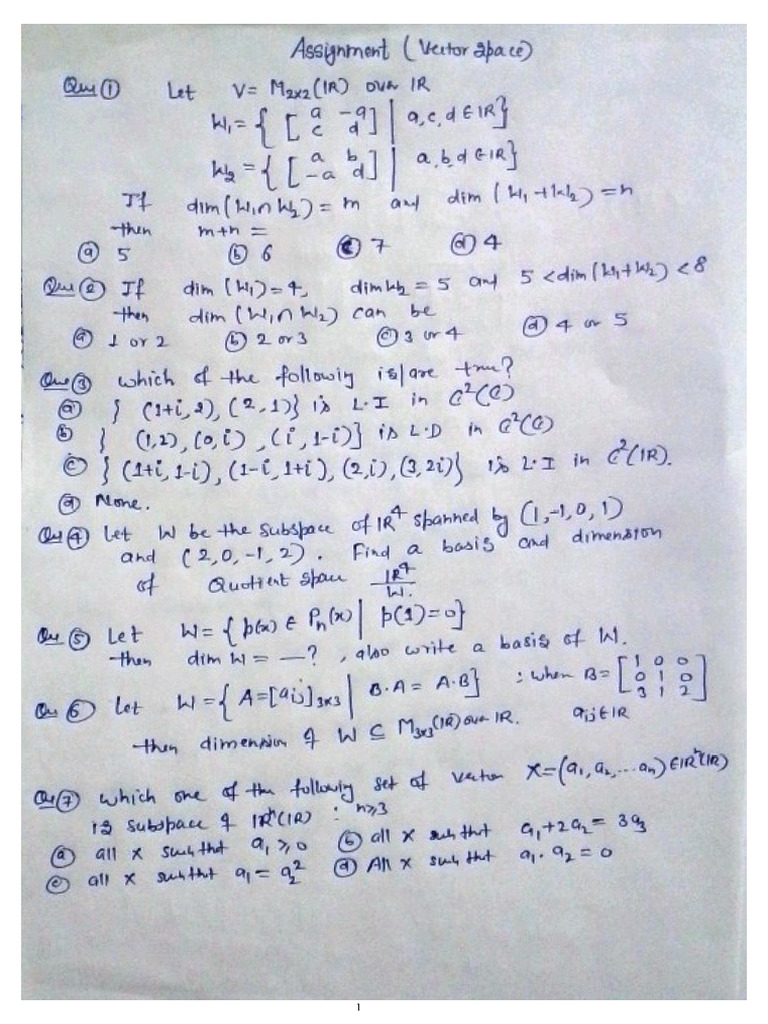 Assignment (Vector space)
Que ① Let V = M₂ₓ₂(IR) over IR
W₁ = { [ a -a ; c d ] | a, c, d ∈ IR}
W₂ = { [ a b ; -a d ] | a, b, d ∈ IR}
If dim(W₁∩W₂) = m and dim(W₁+W₂) = n
then m+n =
ⓐ 5 ⓑ 6 ⓒ 7 ⓓ 4
Que ② If dim(W₁) = 4, dim W₂ = 5 and 5 < dim(W₁+W₂) < 8
then dim(W₁∩W₂) can be
ⓐ 1 or 2 ⓑ 2 or 3 ⓒ 3 or 4 ⓓ 4 or 5
Que ③ which of the following is/are true?
ⓐ { (1+i, 2), (2, 1)} is L.I in ℂ²(ℂ)
ⓑ { (1,2), (0,i), (i, 1-i)} is L.D in ℂ²(ℂ)
ⓒ { (1+i, 1-i), (1-i, 1+i), (2,i), (3, 2i)} is L.I in ℂ²(IR).
ⓓ None.
Que ④ Let W be the subspace of IR⁴ spanned by (1,-1,0,1)
and (2,0,-1,2). Find a basis and dimension
of Quotient space IR⁴/W.
Que ⑤ Let W = { p(x) ∈ Pₙ(x) | p(1) = 0}
then dim W = —? , also write a basis of W.
Que ⑥ Let W = { A = [aij]₃ₓ₃ | B·A = A·B} : when B = [ 1 0 0 ; 0 1 0 ; 3 1 2 ]
then dimension of W ⊆ M₃ₓ₃(IR) over IR. aij ∈ IR
Que ⑦ which one of the following set of vector X = (a₁, a₂, ... aₙ) ∈ IRⁿ(IR)
is subspace of IRⁿ(IR) : n≥3
ⓐ all X such that a₁ ≥ 0 ⓑ all X such that a₁+2a₂ = 3a₃
ⓒ all X such that a₁ = a₂² ⓓ All X such that a₁·a₂ = 0
1